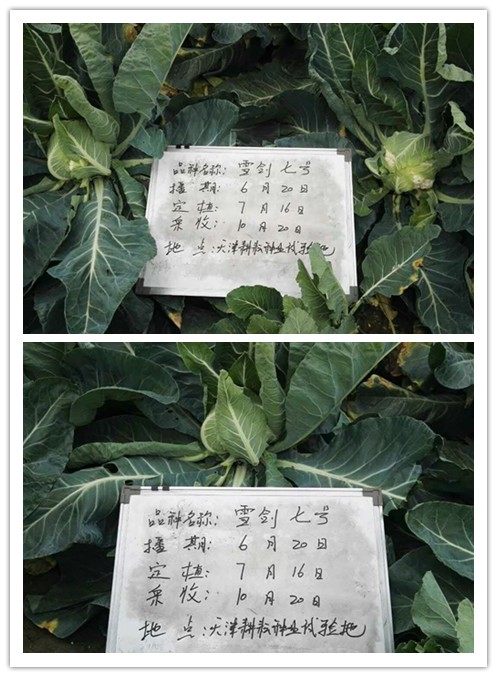 品种名称: 雪剑 七号
播 期: 6 月 20 日
定 植: 7 月 16 日
采 收: 10 月 20 日
地 点: 天津耕耘种业试验地
品种名称: 雪剑 七号
播 期: 6 月 20 日
定 植: 7 月 16 日
采 收: 10 月 20 日
地 点: 天津耕耘种业试验地